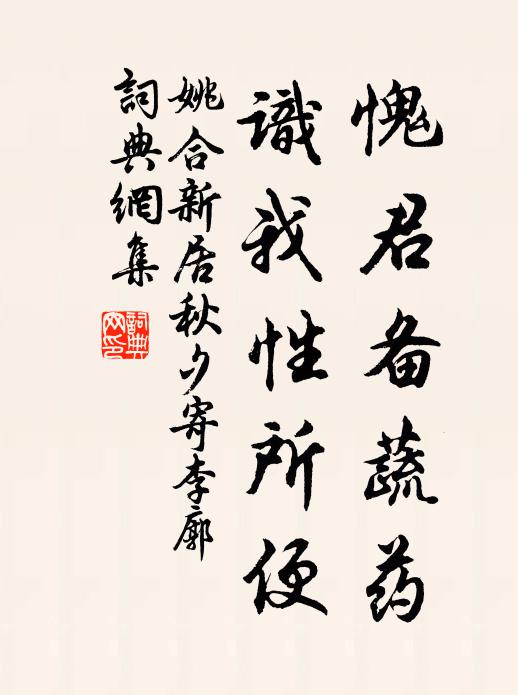 愧君备蔬药
識我性所便
姚合新居秋夕寄李廓
詞典網集
詞典
网印